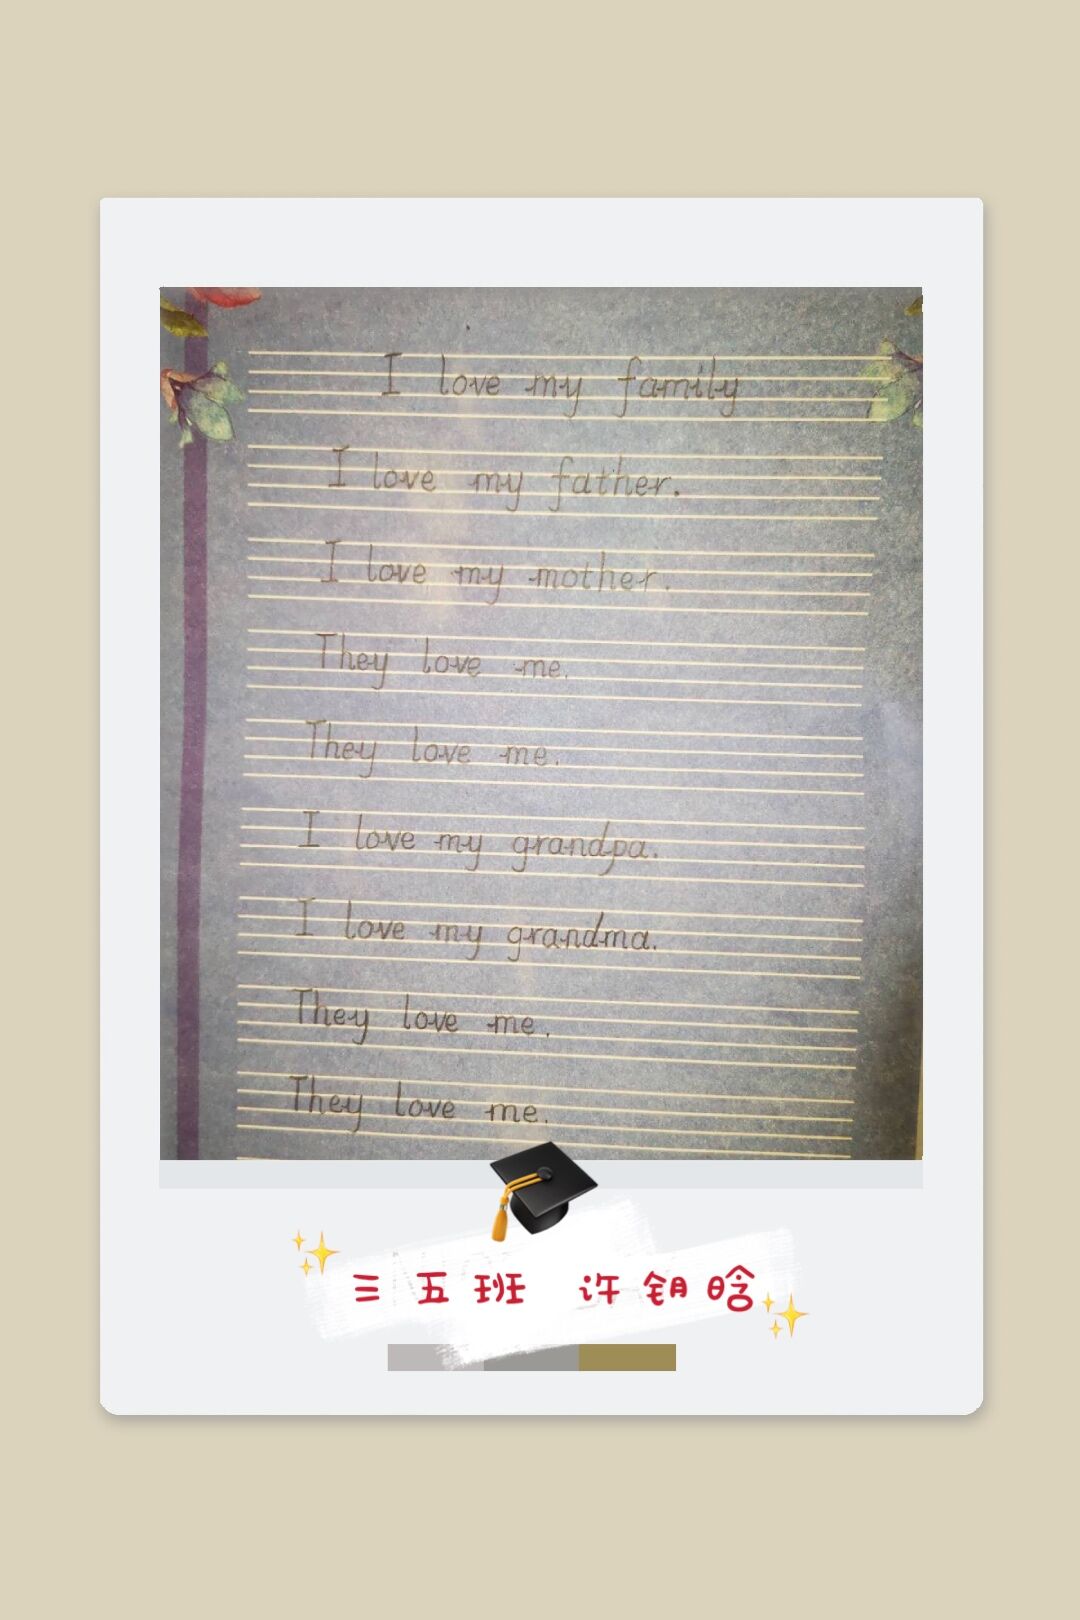 I love my family
I love my father.
I love my mother.
They love me.
They love me.
I love my grandpa.
I love my grandma.
They love me.
They love me.
三五班 许钥晗